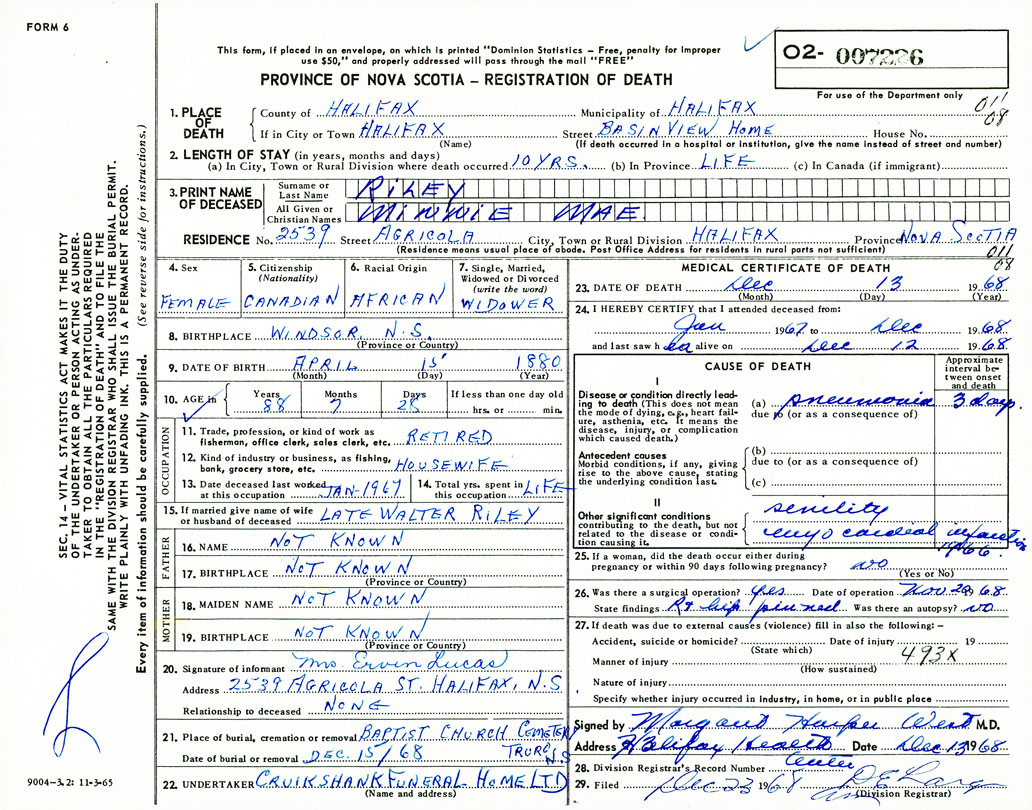 FORM 6
This form, if placed in an envelope, on which is printed "Dominion Statistics – Free, penalty for improper
use $50," and properly addressed will pass through the mail "FREE"
PROVINCE OF NOVA SCOTIA – REGISTRATION OF DEATH
O2- 007226
For use of the Department only
011
08
1. PLACE OF DEATH
County of HALIFAX Municipality of HALIFAX
If in City or Town HALIFAX Street BASIN VIEW HOME House No.
(Name) (If death occurred in a hospital or institution, give the name instead of street and number)
2. LENGTH OF STAY (in years, months and days)
(a) In City, Town or Rural Division where death occurred 10 YRS. (b) In Province LIFE (c) In Canada (if immigrant)
3. PRINT NAME OF DECEASED
Surname or Last Name RILEY
All Given or Christian Names MINNIE MAE
RESIDENCE No. 2539 Street AGRICOLA City, Town or Rural Division HALIFAX Province NOVA SCOTIA
(Residence means usual place of abode. Post Office Address for residents in rural parts not sufficient)
011
08
4. Sex
FEMALE
5. Citizenship
(Nationality)
CANADIAN
6. Racial Origin
AFRICAN
7. Single, Married,
Widowed or Divorced
(write the word)
WIDOWER
8. BIRTHPLACE WINDSOR, N.S.
(Province or Country)
9. DATE OF BIRTH APRIL 15 1880
(Month) (Day) (Year)
10. AGE in
Years Months Days If less than one day old
88 7 28 hrs. or min.
OCCUPATION
11. Trade, profession, or kind of work as
fisherman, office clerk, sales clerk, etc. RETIRED
12. Kind of industry or business, as fishing,
bank, grocery store, etc. HOUSEWIFE
13. Date deceased last worked
at this occupation JAN-1967
14. Total yrs. spent in
this occupation LIFE
15. If married give name of wife
or husband of deceased LATE WALTER RILEY
FATHER
16. NAME NOT KNOWN
17. BIRTHPLACE NOT KNOWN
(Province or Country)
MOTHER
18. MAIDEN NAME NOT KNOWN
19. BIRTHPLACE NOT KNOWN
(Province or Country)
20. Signature of informant Mrs Ervin Lucas
Address 2539 AGRICOLA ST. HALIFAX, N.S
Relationship to deceased NONE
21. Place of burial, cremation or removal BAPTIST CHURCH CEMETERY
TRURO N.S
Date of burial or removal DEC. 15/68
22. UNDERTAKER CRUIKSHANK FUNERAL HOME LTD
(Name and address)
MEDICAL CERTIFICATE OF DEATH
23. DATE OF DEATH Dec 13 1968
(Month) (Day) (Year)
24. I HEREBY CERTIFY that I attended deceased from:
Jan 1967 to Dec 1968
and last saw h er alive on Dec 12 1968
CAUSE OF DEATH
Approximate
interval be-
tween onset
and death
I
Disease or condition directly lead-
ing to death (This does not mean
the mode of dying, e.g., heart fail-
ure, asthenia, etc. It means the
disease, injury, or complication
which caused death.)
(a) pneumonia 3 days
due to (or as a consequence of)
Antecedent causes
Morbid conditions, if any, giving
rise to the above cause, stating
the underlying condition last.
(b)
due to (or as a consequence of)
(c)
II
Other significant conditions
contributing to the death, but not
related to the disease or condi-
tion causing it.
senility
myocardial infarction
1966
25. If a woman, did the death occur either during
pregnancy or within 90 days following pregnancy? no
(Yes or No)
26. Was there a surgical operation? yes Date of operation Nov. 20 1968
State findings Rt hip pinned Was there an autopsy? no
27. If death was due to external causes (violence) fill in also the following: –
Accident, suicide or homicide? Date of injury 19
(State which)
493X
Manner of injury
(How sustained)
Nature of injury
Specify whether injury occurred in industry, in home, or in public place
Signed by Margaret Harper West M.D.
Address Halifax Health Centre Date Dec 13 1968
28. Division Registrar's Record Number
29. Filed Dec 23 1968
(Division Registrar)
SEC. 14 – VITAL STATISTICS ACT MAKES IT THE DUTY
OF THE UNDERTAKER OR PERSON ACTING AS UNDER-
TAKER TO OBTAIN ALL THE PARTICULARS REQUIRED
IN THE "REGISTRATION OF DEATH" AND TO FILE THE
SAME WITH THE DIVISION REGISTRAR WHO SHALL ISSUE THE BURIAL PERMIT.
WRITE PLAINLY WITH UNFADING INK. THIS IS A PERMANENT RECORD.
Every item of information should be carefully supplied. (See reverse side for instructions.)
9004-3.2: 11-3-65